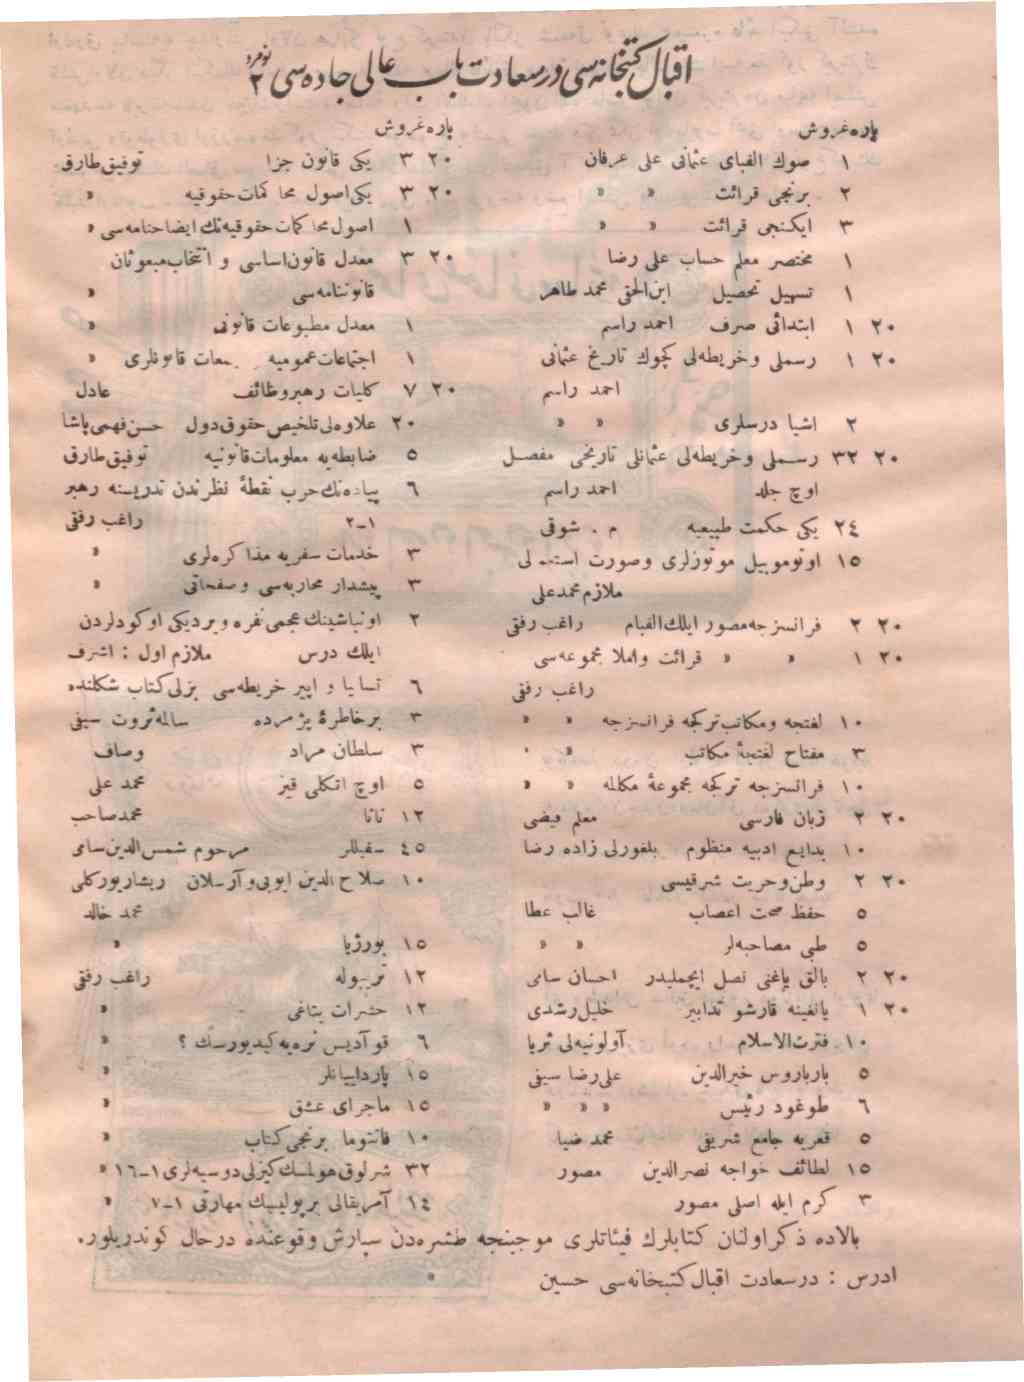 اقبال كتبخانه‌سی درسعادت باب عالی جاده‌سی نومرو ٢
پاره غروش
١ صوك الفبای عثمانی علی عرفان
٢ برنجی قرائت » »
٣ ایكنجی قرائت » »
١ مختصر معلم حساب علی رضا
١ تسهیل تحصیل ابن‌الحقی محمد طاهر
٢٠ ١ ابتدائی صرف احمد راسم
٢٠ ١ رسملی وخریطه‌لی كچوك تاریخ عثمانی
احمد راسم
٢ اشیا درسلری » »
٢٠ ٣٢ رسملی وخریطه‌لی عثمانلی تاریخی مفصل
اوچ جلد احمد راسم
٢٤ یكی حكمت طبیعیه م . شوقی
١٥ اوتوموبیل موتورلری وصورت استعمالی
ملازم محمدعلی
٢٠ ٢ فرانسزجه مصور ایلك الفبام راغب رفقی
٢٠ ١ » » قرائت واملا مجموعه‌سی
راغب رفقی
١٠ لغتجه ومكاتب تركجه فرانسزجه » »
٣ مفتاح لغتجهٔ مكاتب » »
١٠ فرانسزجه تركجه مجموعهٔ مكالمه » »
٢٠ ٢ زبان فارسی معلم فیضی
١٠ بدایع ادبیه منظوم بلغورلی زاده رضا
٢٠ ٢ وطن وحریت شرقیسی
٥ حفظ صحت اعصاب غالب عطا
٥ طبی مصاحبه‌لر » »
٢٠ ٢ بالق یاغنی نصل ایچملیدر احسان سامی
٢٠ ١ یانغینه قارشو تدابیر خلیل رشدی
١٠ فترت‌الاسلام آولونیه‌لی ثریا
٥ بارباروس خیرالدین علی رضا سیفی
٦ طوغود رئیس » » »
٥ قعریه جامع شریفی محمد ضیا
١٥ لطائف خواجه نصرالدین مصور
٣ كرم ایله اصلی مصور
پاره غروش
٢٠ ٣ یكی قانون جزا توفیق طارق
٢٠ ٣ یكی اصول محاكمات حقوقیه »
١ اصول محاكمات حقوقیه‌نك ایضاحنامه‌سی »
٢٠ ٣ معدل قانون اساسی و انتخاب مبعوثان
قانوننامه‌سی »
١ معدل مطبوعات قانونی »
١ اجتماعات عمومیه جمعیات قانونلری »
٢٠ ٧ كلیات رهبر وظائف عادل
٢٠ علاوه‌لی تلخیص حقوق دول حسن فهمی پاشا
٥ ضابطه‌یه معلومات قانونیه توفیق طارق
٦ پیاده‌نك حرب نقطهٔ نظرندن تدریسنه رهبر
١-٢ راغب رفقی
٣ خدمات سفریه مذاكره‌لری »
٣ پیشدار محاربه‌سی وصفحاتی »
٢ اونباشینك عجمی نفره ویردیكی اوكودلردن
ایلك درس ملازم اول : اشرف
٦ تسالیا و اپیر خریطه‌سی بزلی كتاب شكلنده
٣ برخاطرهٔ پژمرده سالمه ثروت سیفی
٣ سلطان مراد وصاف
٥ اوچ اتكلی قیز محمد علی
١٢ نانا محمدصاحب
٤٥ سفیللر مرحوم شمس‌الدین سامی
١٠ صلاح الدین ایوبی وآرسلان ریشاریوركلی
محمد خالد
١٥ بورژیا »
١٢ تریبوله راغب رفقی
١٢ حشرات یتاغی »
٦ قوآدیس نره‌یه كیدیورسك ؟ »
١٥ پاردایانلر »
١٥ ماجرای عشق »
١٠ فانتوما برنجی كتاب »
٣٢ شرلوق هولمسك كیزلی دوسیه‌لری ١-١٦ »
١٤ آمریقالی برپولیسك مهارتی ١-٧ »
بالاده ذكر اولنان كتابلرك فیئاتلری موجبنجه طشره‌دن سپارش وقوعنده درحال كوندریلور.
ادرس : درسعادت اقبال كتبخانه‌سی حسین